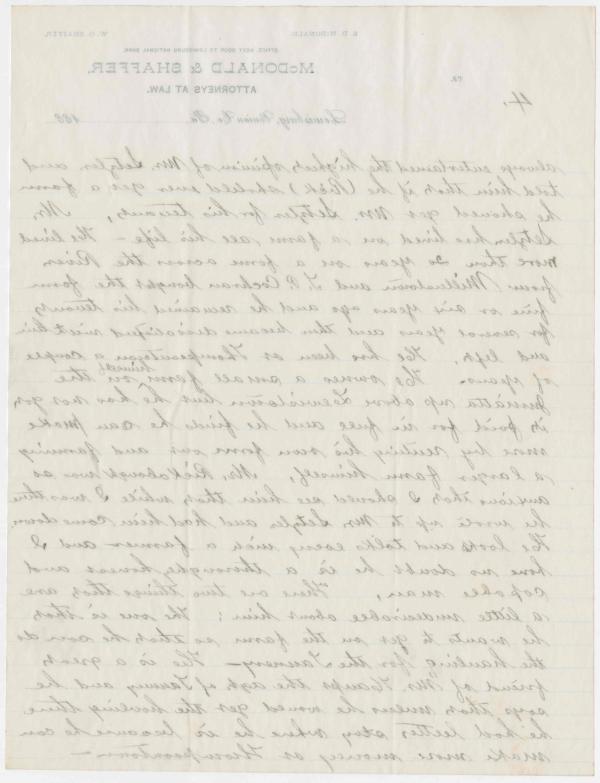 W. O. SHAFFER.
E. D. McDONALD.
OFFICE, NEXT DOOR TO LEWISBURG NATIONAL BANK.
McDONALD & SHAFFER,
ATTORNEYS AT LAW.
Lewisburg, Union Co. Pa. 188
4,
always entertained the highest opinion of Mr. Setzler and
told him that if he (Reek) should ever get a farm
he should get Mr. Setzler for his tenant, Mr.
Setzler has lived on a farm all his life – He lived
more than 20 years on a farm across the River
from Millerstown and T. P. Cochran bought the farm
five or six years ago and he remained his tenant
for several years and then became dissatisfied with him
and left. He has been at Thompsontown a couple
of years. He owns a small farm himself on the
Juniatta up above Lewistown but he has not got
it paid for in full and he finds he can make
more by renting his own farm out and farming
a larger farm himself. Mr. was so
anxious that I should see him that while I was there
he wrote up to Mr. Setzler and had him come down
He looks and talks every inch a farmer and I
have no doubt he is a thorough, honest and
capable man. There are two things that are
a little undesirable about him; The one is that
he wants to get on the farm so that he can do
the hauling for the Tannery – He is a great
friend of Mr. the agt. of Tannery and he
says that unless he would get the hauling there
he had better stay where he is because he can
make more money at Thompsontown –